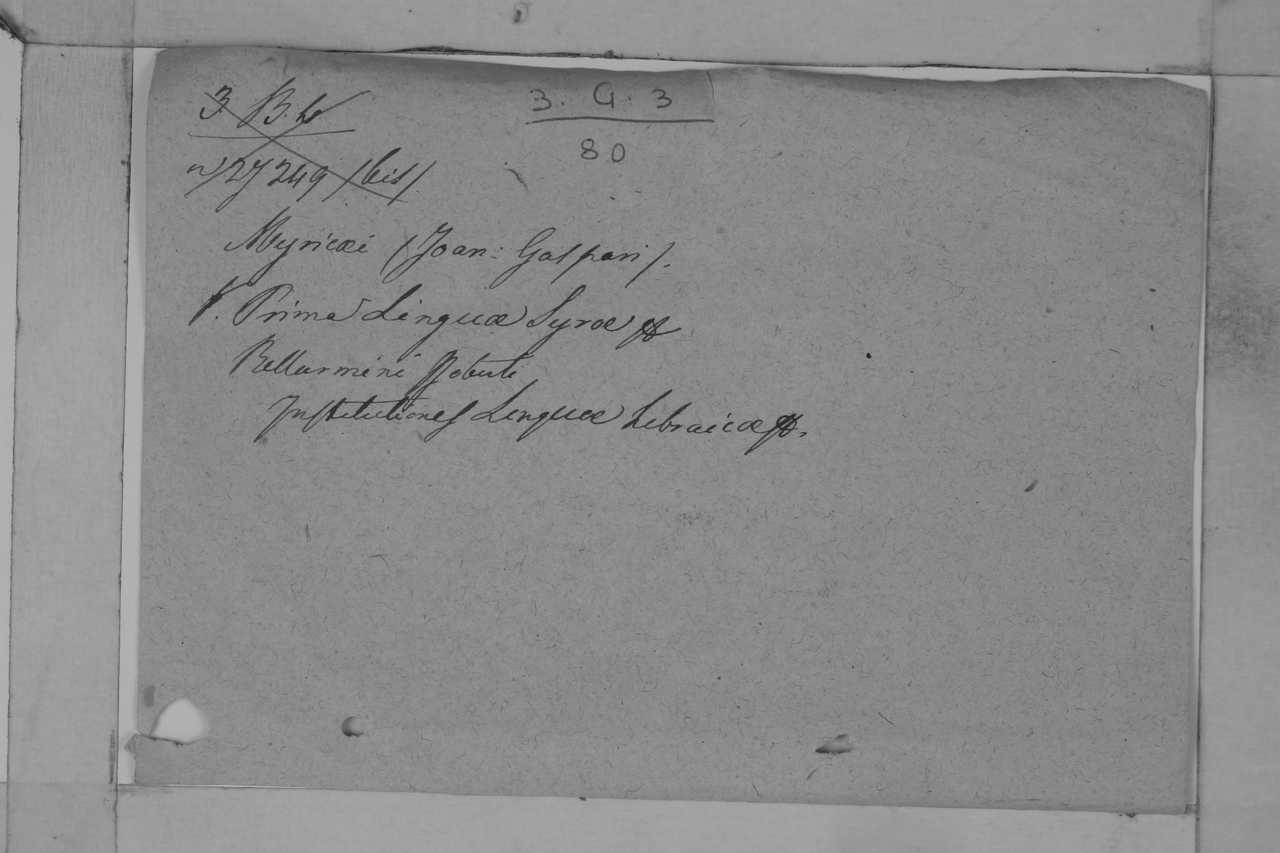 3. B. b
3. G. 3
80
n) 27249 /bis/.
Myricæi /Joan: Gaspari/.
Prima Linguæ Syræ
Bellarmini Roberti
Institutiones Linguæ hebraicæ